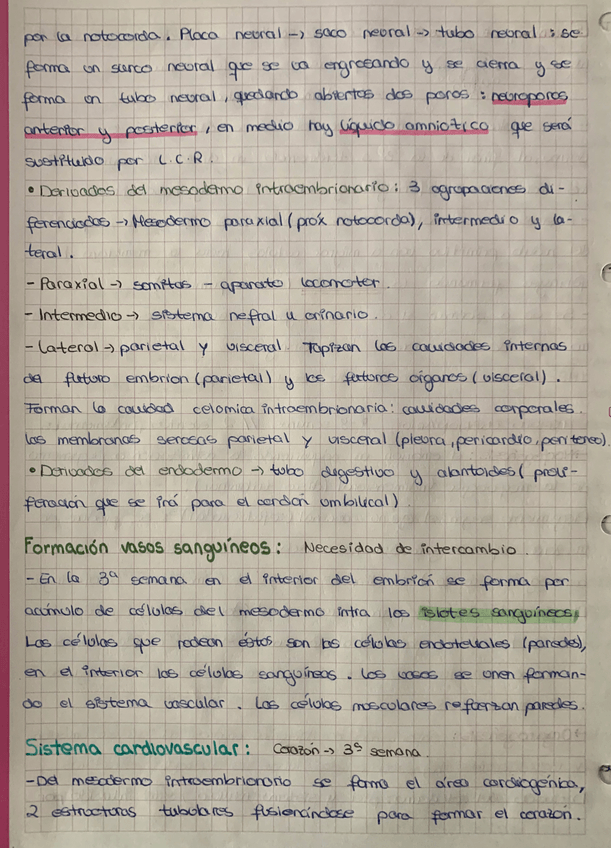 por la notocorda. Placa neural → saco neural → tubo neural : se
forma un surco neural que se va engrosando y se cierra y se
forma un tubo neural, quedando abiertos dos poros : neuroporos
anterior y posterior, en medio hay líquido amniótico que será
sustituido por L.C.R.
• Derivados del mesodermo intraembrionario: 3 agrupaciones di-
ferenciadas → Mesodermo paraxial (próx notocorda), intermedio y la-
teral.
- Paraxial → somitas - aparato locomotor.
- Intermedio → sistema nefral u urinario.
- Lateral → parietal y visceral Tapizan las cavidades internas
del futuro embrión (parietal) y los futuros órganos (visceral).
Forman la cavidad celomica intraembrionaria: cavidades corporales.
las membranas serosas parietal y visceral (pleura, pericardio, peritoneo)
• Derivados del endodermo → tubo digestivo y alantoides (proli-
feración que se irá para el cordón umbilical)
Formación vasos sanguíneos: Necesidad de intercambio.
- En la 3ª semana en el interior del embrión se forma por
acúmulo de células del mesodermo intra los islotes sanguíneos,
Las células que rodean éstos son las células endoteliales (paredes),
en el interior las células sanguíneas. Los vasos se unen forman-
do el sistema vascular. Las células musculares refuerzan paredes.
Sistema cardiovascular: Corazón → 3ª semana.
- Del mesodermo intraembrionario se forma el área cardiogénica,
2 estructuras tubulares fusionándose para formar el corazón.